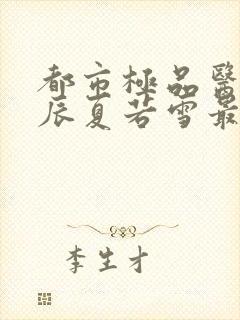 都市極品醫
辰夏若雪最
李生才